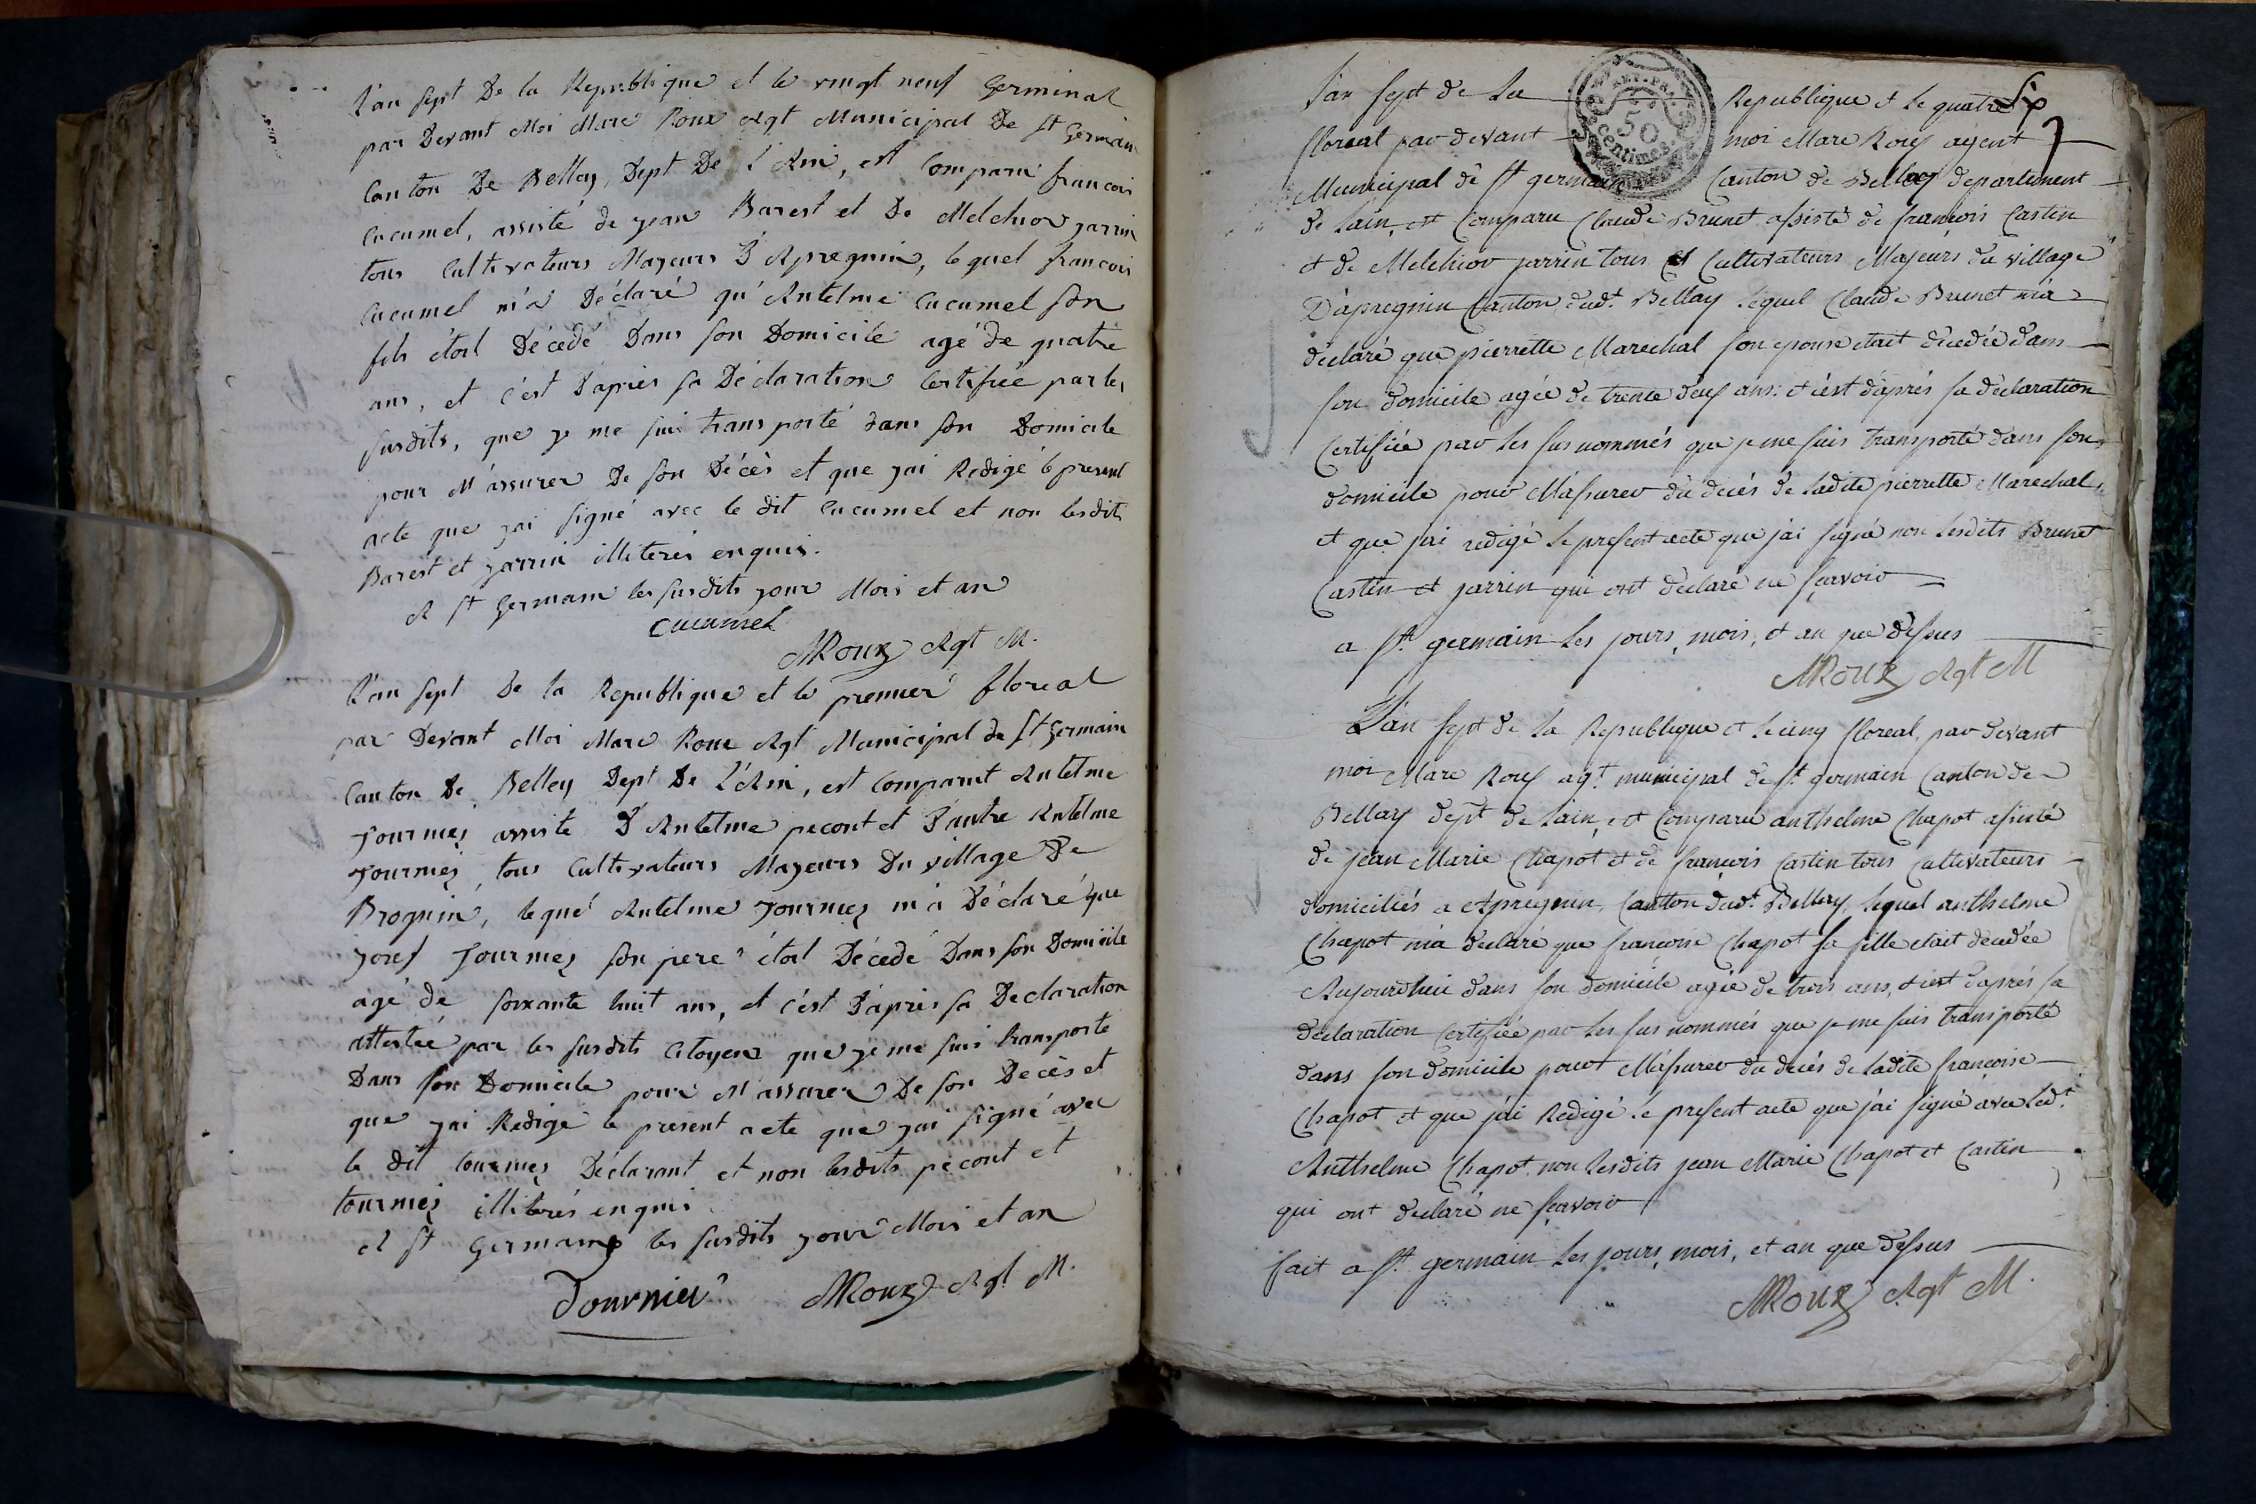 L'an sept De la Republique et le vingt neuf Germinal
par Devant Moi Marc Roux Agt Municipal De St Germain
Canton De Belley, Dept De l'Ain, est Comparu francois
Cucumel, assisté de jean Barest et De Melchior jarrin
tous Cultivateurs Majeurs D'Apregnin, lequel francois
Cucumel m'a Déclaré qu'Antelme Cucumel son
fils étoit Décedé Dans son Domicile agé de quatre
ans, et c'est D'apries sa Déclaration Certifiée par les
susdits, que je me suis transporté dans son Domicile
pour M'assurer De son Décès et que jai Redigé le present
acte que jai signé avec le dit Cucumel et non lesdits
Barest et jarrin illiterés enquis.
A St Germain les susdits jour Mois et an
Cucumel
MRoux Agt M.
L'an sept De la Republique et le premier floreal
par Devant Moi Marc Roux Agt Municipal de St Germain
Canton De Belley Dept De L'Ain, est Comparut Antelme
Tournier assisté D'Antelme pecont et D'autre Antelme
Tournier, tous Cultivateurs Majeurs Du village De
Brognin, lequé Antelme Tournier m'a Déclaré que
josef Tournier son pere étoit Décedé Dans son Domicile
agé de soixante huit ans, et c'est D'apries sa Declaration
attestée par les susdits Citoyens que je me suis transporté
Dans son Domicile pour M'assurer De son Décès et
que jai Redigé le present acte que jai signé avec
le dit tournier Déclarant et non lesdits pecont et
tournier illiterés enquis
A St Germain les susdits jour Mois et an
Tournier MRoux Agt M.
Six
L'an sept de La Republique et le quatre
floreal par devant moi Marc Roux agent
Municipal de St germain Canton de Belley departement
de Lain, est Comparu Claude Brunet assisté de francois Castin
et de Melchior jarrin tous Cultivateurs Majeurs du village
D'apregnin Canton dudt. Bellay lequel Claude Brunet m'a
declaré que pierrette Marechal son epouse etait decedée dans
son domicile agée de trente deux ans: et c'est d'aprés sa declaration
Certifiée par les sus nommés que je me suis transporté dans son
domicile pour M'assurer du decés de ladite pierrette Marechal
et que j'ai redigé le present acte que j'ai signé non lesdits Brunet
Castin et jarrin qui ont declaré ne sçavoir
a St. germain les jours, mois, et an que dessus
MRoux Agt M
L'an sept de La Republique et le cinq floreal, par devant
moi Marc Roux agt. municipal de St. germain Canton de
Bellay dept de Lain, est Comparu anthelme Chapot assisté
de jean Marie Chapot et de francois Castin tous Cultivateurs
domiciliés a Apregnin, Canton dudt. Bellay, lequel anthelme
Chapot m'a declaré que francoise Chapot sa fille etait decedée
Aujourdhui dans son domicile agée de trois ans, et c'est d'aprés sa
declaration Certifiée par les sus nommés que je me suis transporté
dans son domicile pour M'assurer du decés de ladite francoise
Chapot, et que j'ai Redigé le present acte que j'ai signé avec ledt.
Anthelme Chapot non lesdits jean Marie Chapot et Castin
qui ont declaré ne sçavoir
fait a St. germain les jours, mois, et an que dessus
MRoux Agt M.